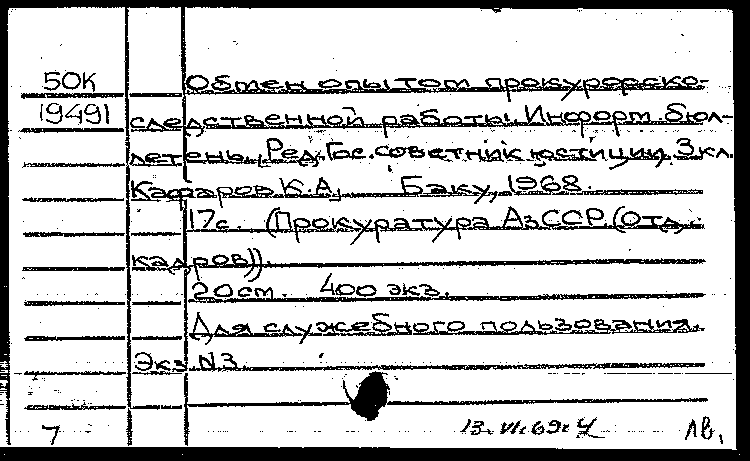 50К Обмен опытом прокурорско-
19491 следственной работы. Информ. бюл-
летень. Ред. Гос. советник юстиции 3 кл.
Кафаров К.А. Баку, 1968.
17с. (Прокуратура АзССР. (Отд.
кадров)).
20 см. 400 экз.
Для служебного пользования.
Экз. N 3.
7 13. VI. 69г. Лв.